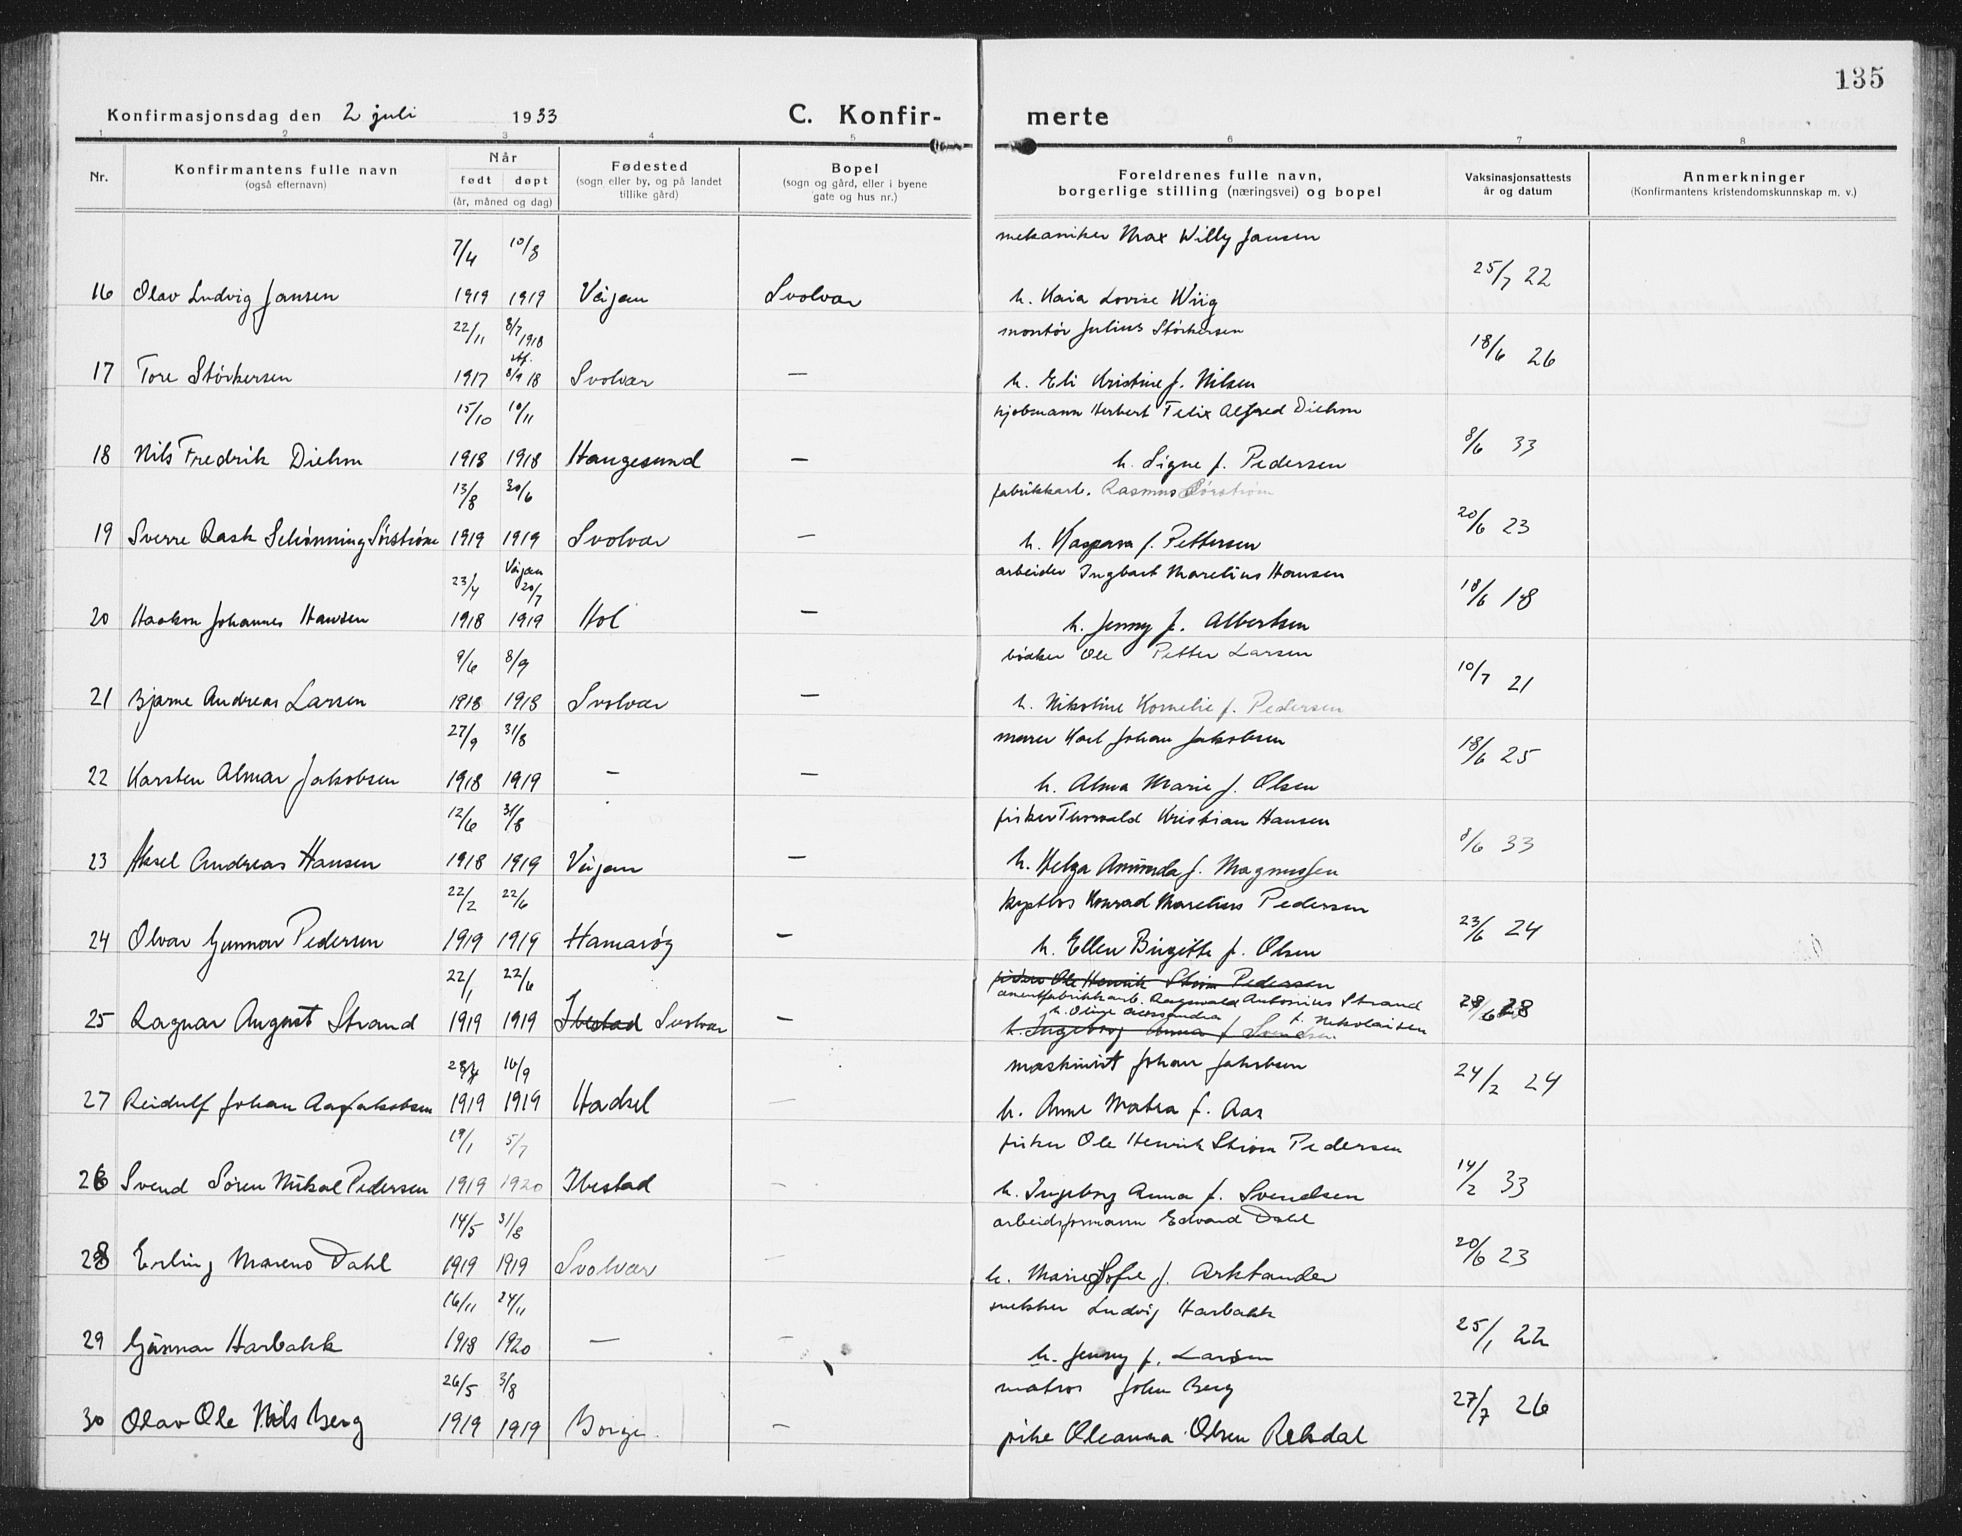 135
Konfirmasjonsdag den 2 juli 1933 C. Konfir- merte
1 2 3 4 5 6 7 8
Nr. Konfirmantens fulle navn (også efternavn) Når født døpt (år, måned og dag) Fødested (sogn eller by, og på landet tillike gård) Bopel (sogn og gård, eller i byene gate og hus nr.) Foreldrenes fulle navn, borgerlige stilling (næringsvei) og bopel Vaksinasjonsattests år og datum Anmerkninger (Konfirmantens kristendomskunnskap m. v.)
7/4 10/8 mekaniker Max Willy Jansen
16 Olav Ludvig Jansen 1919 1919 Vågan Svolvær h. Kaia Lovise Wiig 25/7 22
22/11 8/7 1918 montør Julius Størkersen
17 Tore Størkersen 1917 stf. 8/9 18 Svolvær — h. Eli Kristine f. Nilsen 18/6 26
15/10 10/11 kjøbmann Herbert Felix Alfred Diehm
18 Nils Fredrik Diehm 1918 1918 Haugesund — h. Signe f. Pedersen 8/6 33
13/8 30/6 fabrikkarb. Rasmus Sørstrøm
19 Sverre Rask Schönning Sørstrøm 1919 1919 Svolvær — h. Kaspara f. Pettersen 20/6 23
23/4 Vågan 20/7 arbeider Ingbart Marelius Hansen
20 Haakon Johannes Hansen 1918 1919 Hol — h. Jenny f. Albertsen 18/6 18
9/6 8/9 bødker Ole Petter Larsen
21 Bjarne Andreas Larsen 1918 1918 Svolvær — h. Nikoline Kornelie f. Pedersen 10/7 21
27/9 31/8 murer Karl Johan Jakobsen
22 Karsten Almar Jakobsen 1918 1919 — — h. Alma Marie f. Olsen 18/6 25
12/6 31/8 fisker Torvald Kristian Hansen
23 Aksel Andreas Hansen 1918 1919 Vågan — h. Helga Amunda f. Magnussen 8/6 33
22/2 22/6 kystlos Konrad Marelius Pedersen
24 Olvar Gunnar Pedersen 1919 1919 Hamarøy — h. Ellen Birgitte f. Olsen 23/6 24
22/1 22/6 fisker Ole Henrik Strøm Pedersen
fabrikkarb. Antonius Strand
25 Ragnar August Strand 1919 1919 Ibestad Svolvær — h. Oline f. Nikolaisen 28/6 28
h. Ingeborg Anna f. Svendsen
16/9 maskinist Johan Jakobsen
27 Reidulf Johan Aas Jakobsen 1919 1919 Hadsel — h. Anne Matea f. Aas 24/2 24
19/1 5/7 fisker Ole Henrik Strøm Pedersen
26 Svend Søren Mikal Pedersen 1919 1920 Ibestad — h. Ingeborg Anna f. Svendsen 14/2 33
14/5 31/8 arbeidsformann Edvard Dahl
28 Erling Mareno Dahl 1919 1919 Svolvær — h. Marie Sofie f. Arktander 20/6 23
16/11 24/11 snekker Ludvig Harbakk
29 Gunnar Harbakk 1918 1920 — — h. Jenny f. Larsen 25/1 22
26/5 3/8 matros John Berg
30 Olav Ole Nils Berg 1919 1919 Borge. — pike Oleanna Olsen Rekdal 27/7 26